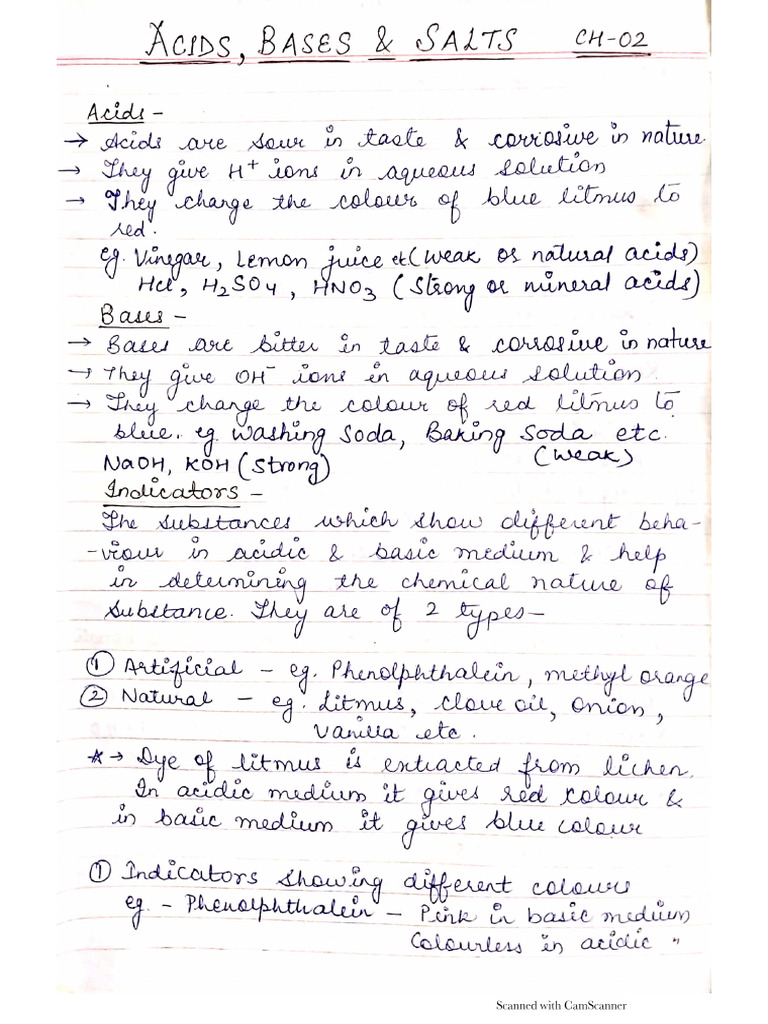 ACIDS, BASES & SALTS CH-02
Acids -
→ Acids are sour in taste & corrosive in nature
→ They give H⁺ ions in aqueous solution
→ They change the colour of blue litmus to
red.
eg. Vinegar, Lemon juice etc (weak or natural acids)
HCl, H₂SO₄, HNO₃ (Strong or mineral acids)
Bases -
→ Bases are bitter in taste & corrosive in nature
→ They give OH⁻ ions in aqueous solution.
→ They change the colour of red litmus to
blue. eg. Washing Soda, Baking Soda etc.
(weak)
NaOH, KOH (Strong)
Indicators -
The substances which show different beha-
-viour in acidic & basic medium & help
in determining the chemical nature of
substance. They are of 2 types-
① Artificial - eg. Phenolphthalein, methyl orange
② Natural - eg. Litmus, clove oil, onion,
Vanilla etc.
* → Dye of litmus is extracted from lichen.
In acidic medium it gives red colour &
in basic medium it gives blue colour
① Indicators showing different colours
eg. - Phenolphthalein - Pink in basic medium
Colourless in acidic "
Scanned with CamScanner